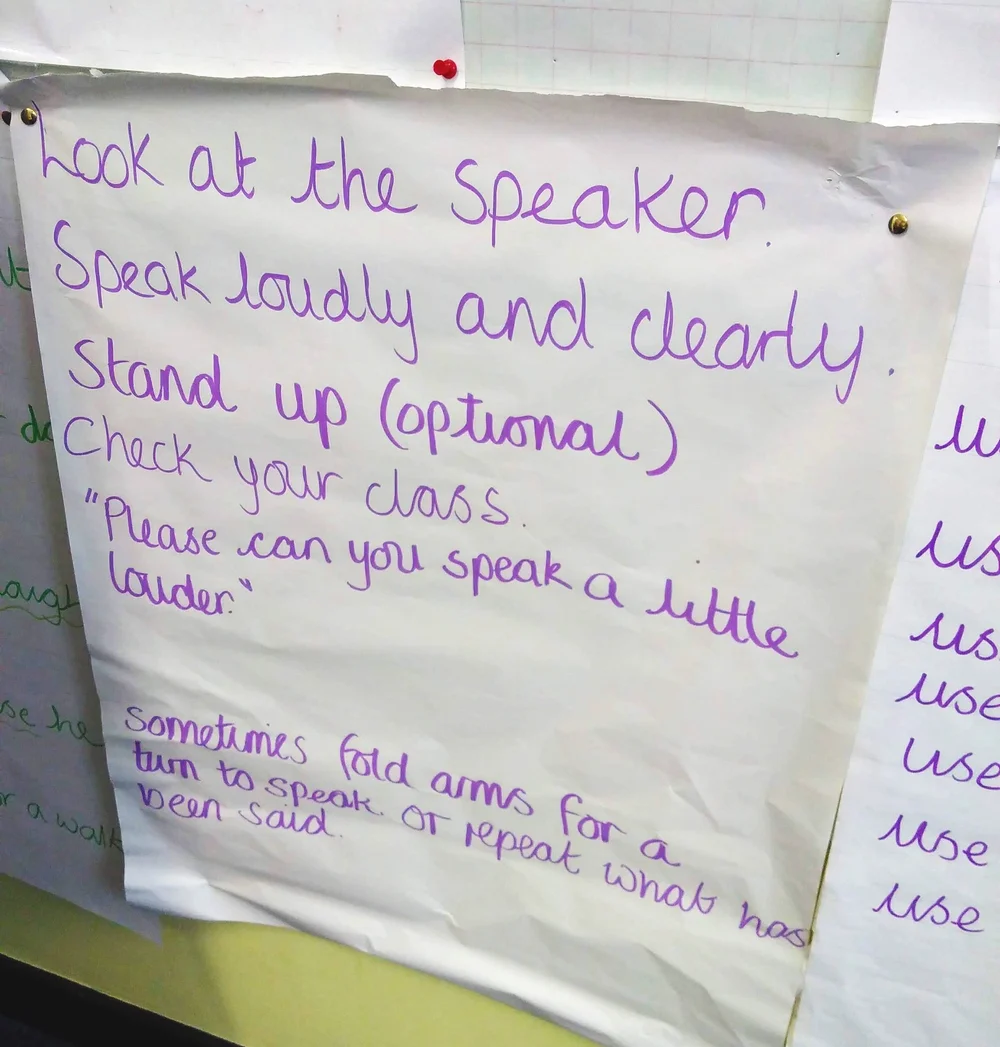 Look at the speaker.
Speak loudly and clearly.
Stand up (optional)
Check your class.
"Please can you speak a little
louder."
Sometimes fold arms for a
turn to speak. Or repeat what has
been said.
use
use
use
use